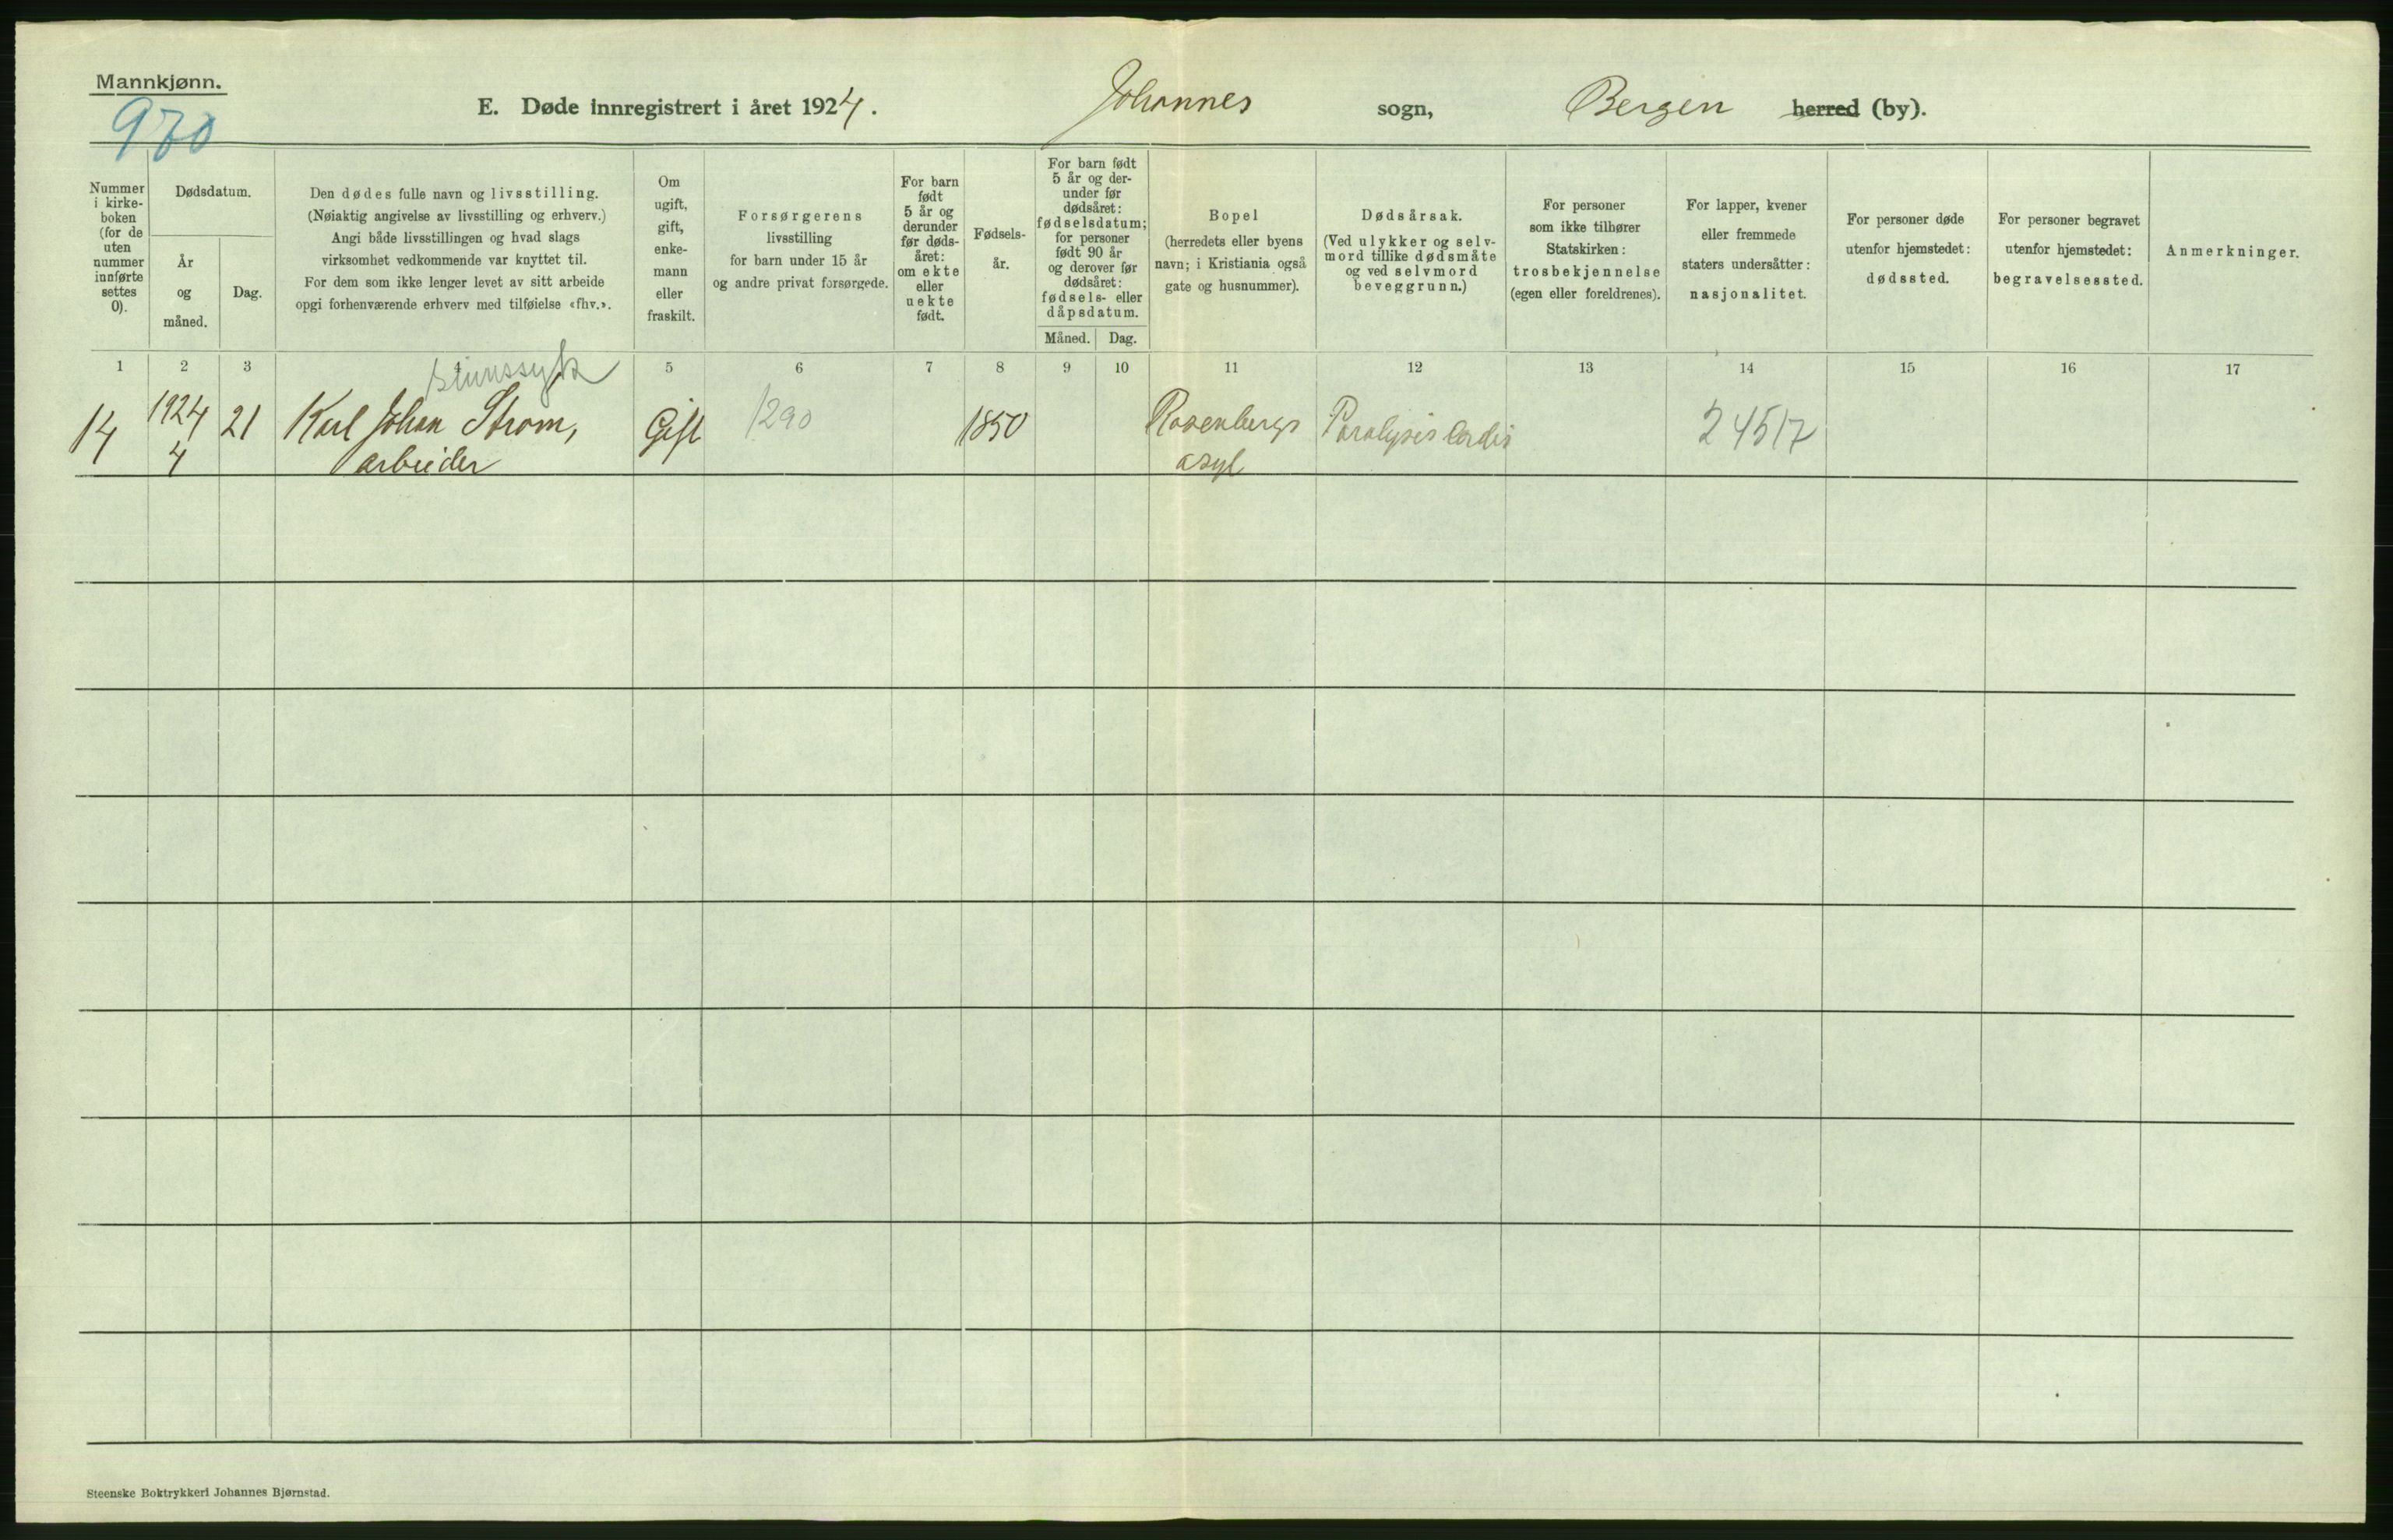 Mannkjønn.
970
E. Døde innregistrert i året 1924. Johannes sogn, Bergen herred (by).
Nummer
i kirke-
boken
(for de
uten
nummer
innførte
settes
0).
Dødsdatum.
År
og
måned.
Dag.
Den dødes fulle navn og livsstilling.
(Nøiaktig angivelse av livsstilling og erhverv.)
Angi både livsstillingen og hvad slags
virksomhet vedkommende var knyttet til.
For dem som ikke lenger levet av sitt arbeide
opgi forhenværende erhverv med tilføielse «fhv.».
Om
ugift,
gift,
enke-
mann
eller
fraskilt.
Forsørgerens
livsstilling
for barn under 15 år
og andre privat forsørgede.
For barn
født
5 år og
derunder
før døds-
året:
om ekte
eller
uekte
født.
Fødsels-
år.
For barn født
5 år og der-
under før
dødsåret:
fødselsdatum;
for personer
født 90 år
og derover før
dødsåret:
fødsels- eller
dåpsdatum.
Måned. Dag.
Bopel
(herredets eller byens
navn; i Kristiania også
gate og husnummer).
Dødsårsak.
(Ved ulykker og selv-
mord tillike dødsmåte
og ved selvmord
beveggrunn.)
For personer
som ikke tilhører
Statskirken:
trosbekjennelse
(egen eller foreldrenes).
For lapper, kvener
eller fremmede
staters undersåtter:
nasjonalitet.
For personer døde
utenfor hjemstedet:
dødssted.
For personer begravet
utenfor hjemstedet:
begravelsessted.
Anmerkninger.
1 2 3 5 6 7 8 9 10 11 12 13 14 15 16 17
sinnssyk
14 1924 21 Karl Johan Strøm, Gift 1290 1850 Rosenbergs Paralysis Cordis 24517
4 arbeider asyl
Steenske Boktrykkeri Johannes Bjørnstad.